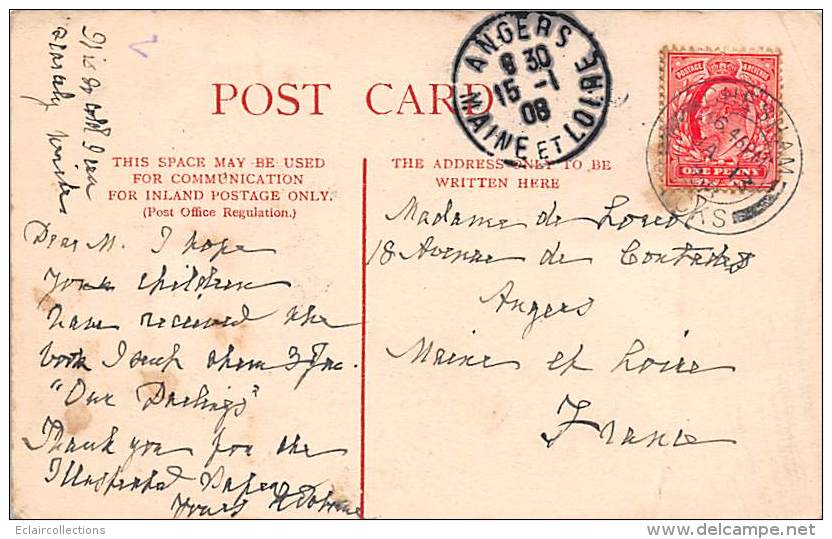 POST CARD
THIS SPACE MAY BE USED
FOR COMMUNICATION
FOR INLAND POSTAGE ONLY.
(Post Office Regulation.)
THE ADDRESS ONLY TO BE
WRITTEN HERE
ANGERS
8 30
15 -1
08
MAINE ET LOIRE
POSTAGE & REVENUE
ONE PENNY
Dear M. I hope
your children
have received the
book I sent them 3 Jan.
"Our Darlings"
Thank you for the
Illustrated Paper
Yours
Madame de
18 Avenue de Contades
Angers
Maine et Loire
France
Eclaircollections
delcampe.net